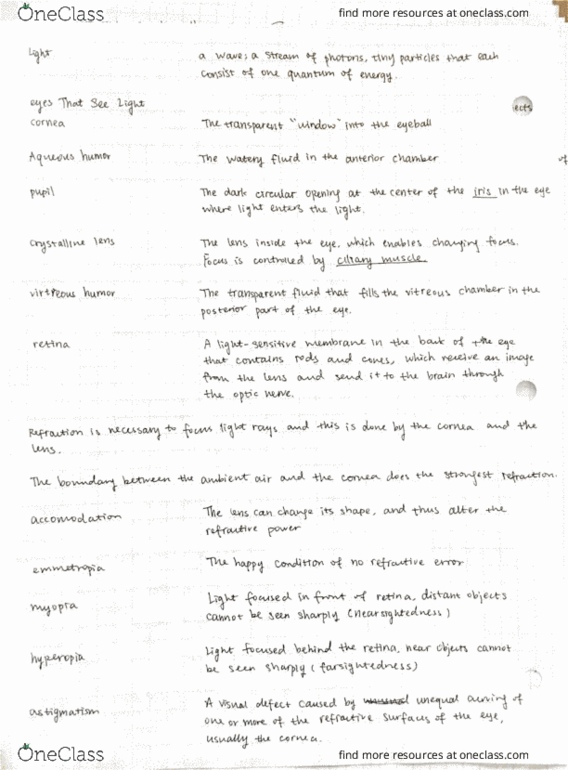 OneClass
find more resources at oneclass.com
light
a wave; a stream of photons, tiny particles that each
consist of one quantum of energy.
eyes That See Light
ects
cornea
The transparent "window" into the eyeball
Aqueous humor
The watery fluid in the anterior chamber
of
pupil
The dark circular opening at the center of the iris in the eye
where light enters the light.
crystalline lens
The lens inside the eye, which enables changing focus.
Focus is controlled by ciliary muscle.
vitreous humor
The transparent fluid that fills the vitreous chamber in the
posterior part of the eye.
retina
A light-sensitive membrane in the back of the eye
that contains rods and cones, which receive an image
from the lens and send it to the brain through
the optic nerve.
Refraction is necessary to focus light rays and this is done by the cornea and the
lens.
The boundary between the ambient air and the cornea does the strongest refraction.
accomodation
The lens can change its shape, and thus alter the
refractive power
emmetropia
The happy condition of no refractive error
myopia
Light focused in front of retina, distant objects
cannot be seen sharply (nearsightedness)
hyperopia
Light focused behind the retina, near objects cannot
be seen sharply (farsightedness)
astigmatism
A visual defect caused by unequal curving of
one or more of the refractive surfaces of the eye,
usually the cornea.
OneClass
find more resources at oneclass.com